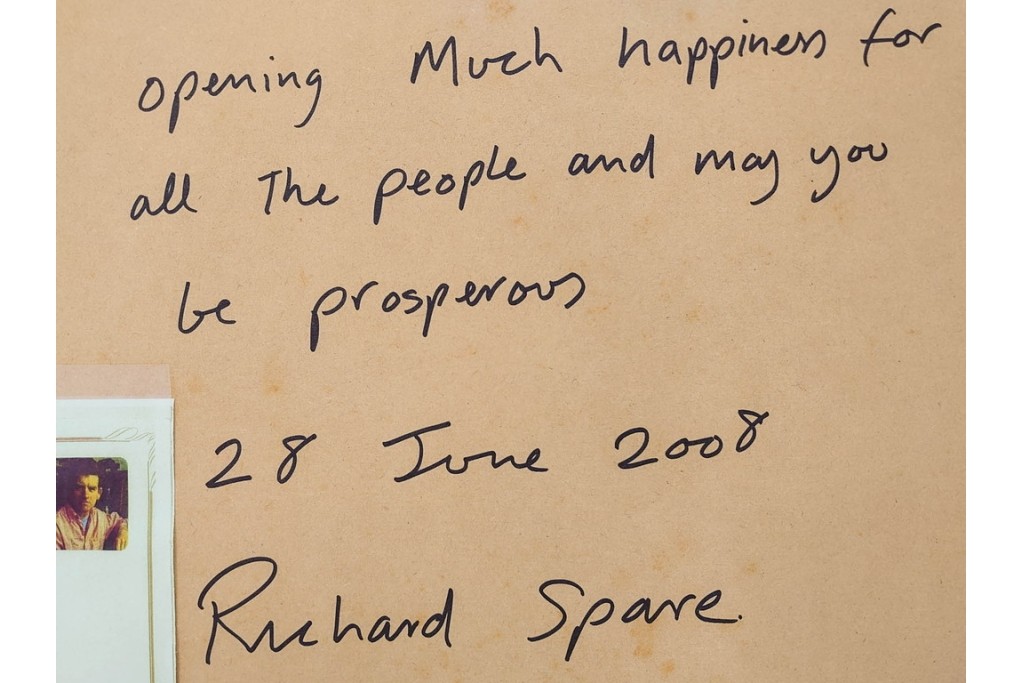 opening Much happiness for
all The people and may you
be prosperous
28 June 2008
Richard Spare.